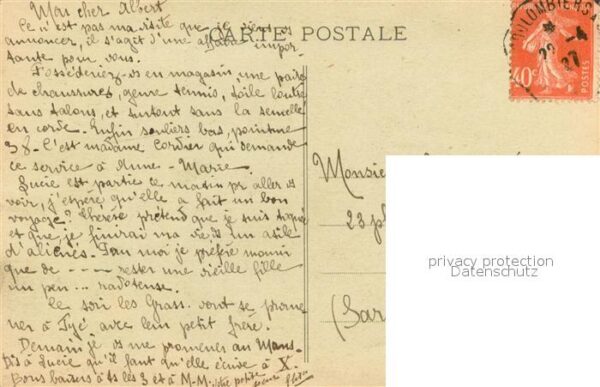 Mon cher Albert
Ce n'est pas ma visite que je viens vs
annoncer, il s'agit d'une affaire impor-
tante pour vous.
CARTE POSTALE
Possédez-vs en magasin, une paire
de chaussures, genre tennis, toile
sans talons, et surtout sans la semelle
en corde. Enfin souliers bas, pointure
38. C'est madame Cordier qui demande
ce service à Anne-Marie.
Lucie est partie ce matin pr aller vs
voir, j'espère qu'elle a fait un bon
voyage? Thérèse prétend que je suis
et que je finirai ma vie ds un asile
d'aliénés. Pour moi je préfère mourir
que de ---- rester une vieille fille
un peu ... radoteuse.
Ce soir les Grass. vont se prome-
ner à Tyé avec leur petit frère.
Demain je vs me promener au Mans.
Dis à Lucie qu'il faut qu'elle écrive à X.
Bons baisers à ts les 3 et à M-M. votre petite
soeur
Monsie
23 pl
(Sar
40c
POSTES
29 -4
27
privacy protection
Datenschutz